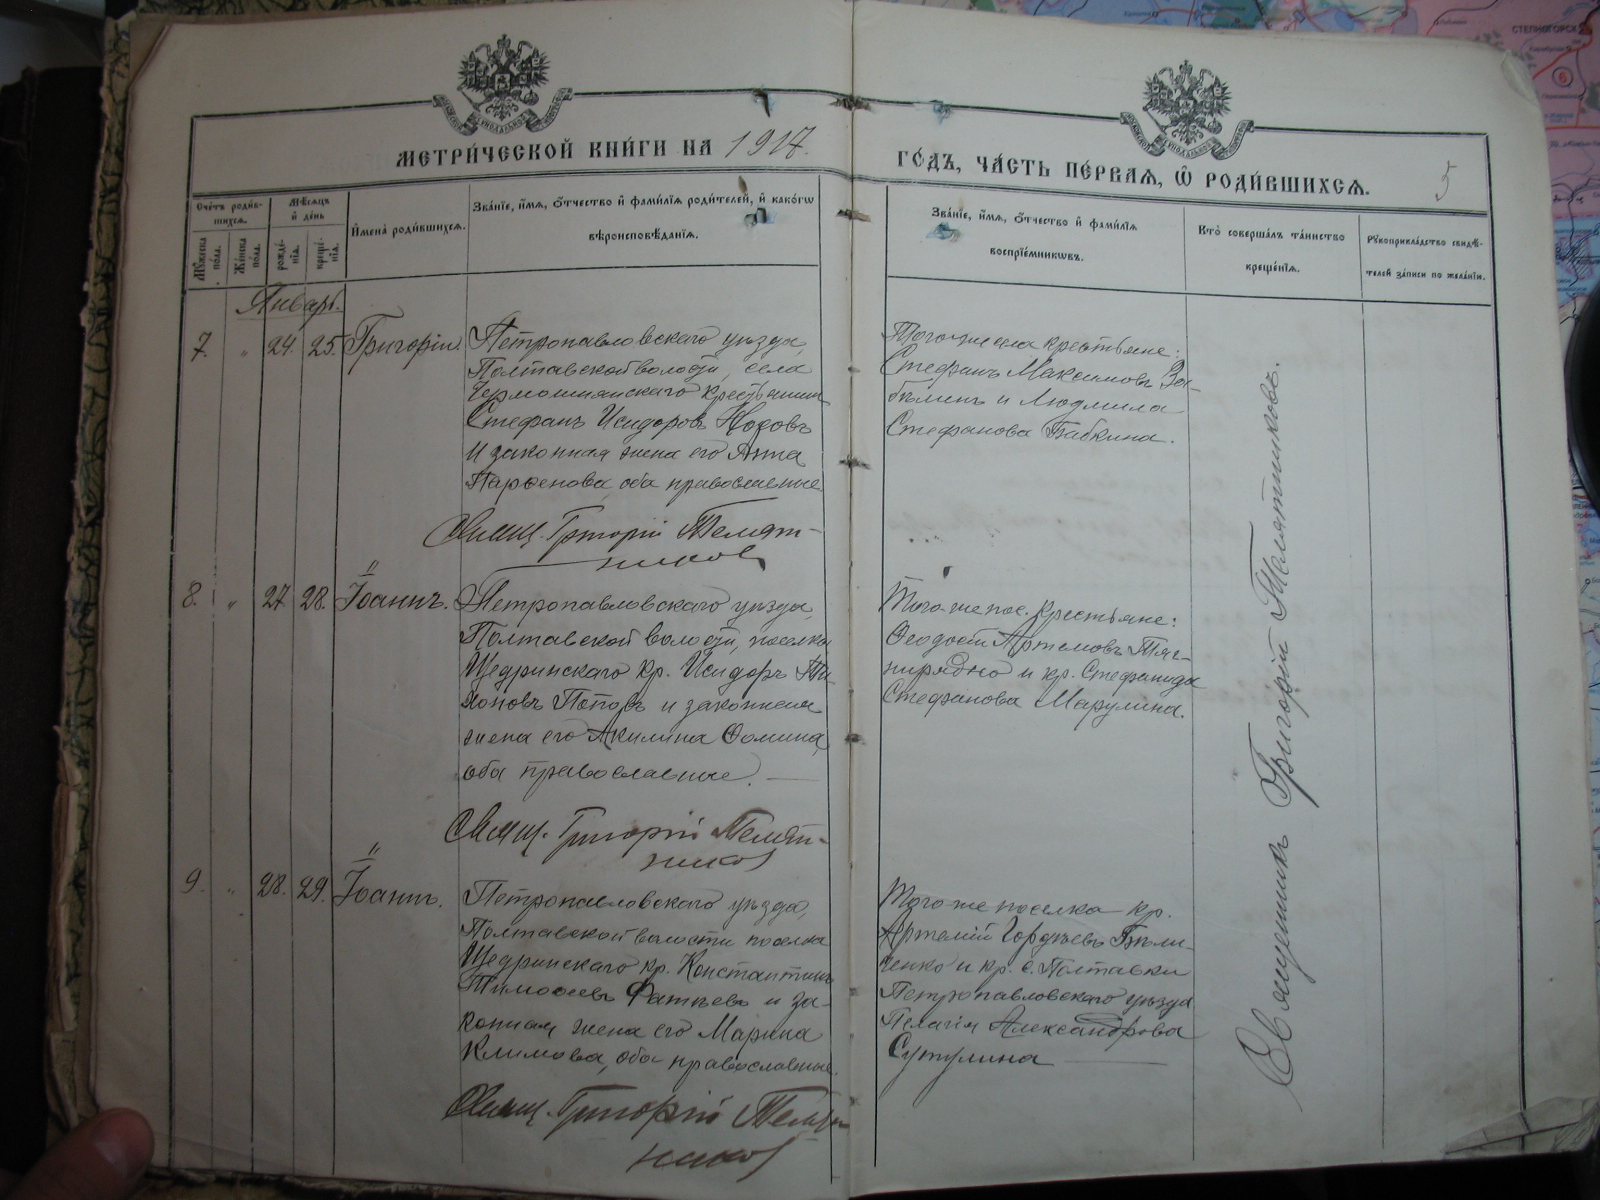 МЕТРИ́ЧЕСКОЙ КНИ́ГИ НА 1917.
ГО́ДЪ, ЧА́СТЬ ПЕ́РВАѦ, Ѿ РОДИ́ВШИХСѦ.
5
Сче́тъ роди́в-
шихсѧ.
Мѣ́сѧцъ
и҆ де́нь
Му́жеска
по́ла.
Же́нска
по́ла.
рожде́-
нїѧ.
креще́-
нїѧ.
И҆мена̀ роди́вшихсѧ.
Зва́нїе, и҆́мѧ, ѻ҆́тчество и҆ фами́лїѧ роди́телей, и҆ како́гѡ
вѣроисповѣ́данїѧ.
Зва́нїе, и҆́мѧ, ѻ҆́тчество и҆ фами́лїѧ
воспрїе́мникѡвъ.
Кто̀ соверша́лъ та́инство
креще́нїѧ.
Рꙋкоприкла́дство свидѣ́-
телей за́писи по жела́нїю.
Январь.
7. " 24. 25. Григорій.
Петропавловскаго уѣзда,
Полтавской волости, села
крестьянинъ
Стефанъ Исидоровъ
и законная жена его Анна
Парѳенова, оба православные
Свящ. Григорій Телят-
никовъ
Того же села крестьяне:
Стефанъ Максимовъ
и Людмила
Стефанова Бабкина.
8. " 27. 28. Іоаннъ.
Петропавловскаго уѣзда,
Полтавской волости, поселка
Щедринскаго кр. Исидоръ Ти-
хоновъ Поповъ и законная
жена его Акилина Ѳомина,
оба православные.
Свящ. Григорій Телят-
никовъ
Того же пос. крестьяне:
Ѳеодосій Артемовъ Тяг-
нирядно и кр. Стефанида
Стефанова Марулина.
9. " 28. 29. Іоаннъ.
Петропавловскаго уѣзда,
Полтавской волости поселка
Щедринскаго кр. Константинъ
Тимоѳеевъ Фатѣевъ и за-
конная жена его Марина
Климова, оба православные.
Свящ. Григорій Телят-
никовъ
Того же поселка кр.
Артемій Гордѣевъ Бѣли-
ченко и кр. с. Полтавки
Петропавловскаго уѣзда
Пелагія Александрова
Сутулина
Священникъ Григорій Телятниковъ.
СТЕПНОГОРСК
6